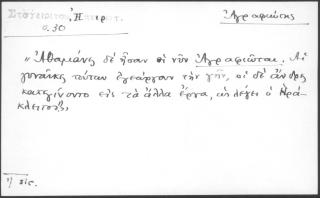 Στοιχεῖα τῆς Ἠπειρωτ. Ἀγραφιώτης
σ.30
"Ἀθαμᾶνες δέ ἦσαν οἱ νῦν Ἀγραφιῶται. Αἱ
γυναῖκες τούτων εἰργάζοντο τὴν γῆν, οἱ δέ ἄνδρες
κατεγίνοντο εἰς τὰ ἄλλα ἔργα, ὡς λέγει ὁ Ἡρά-
κλειτος"